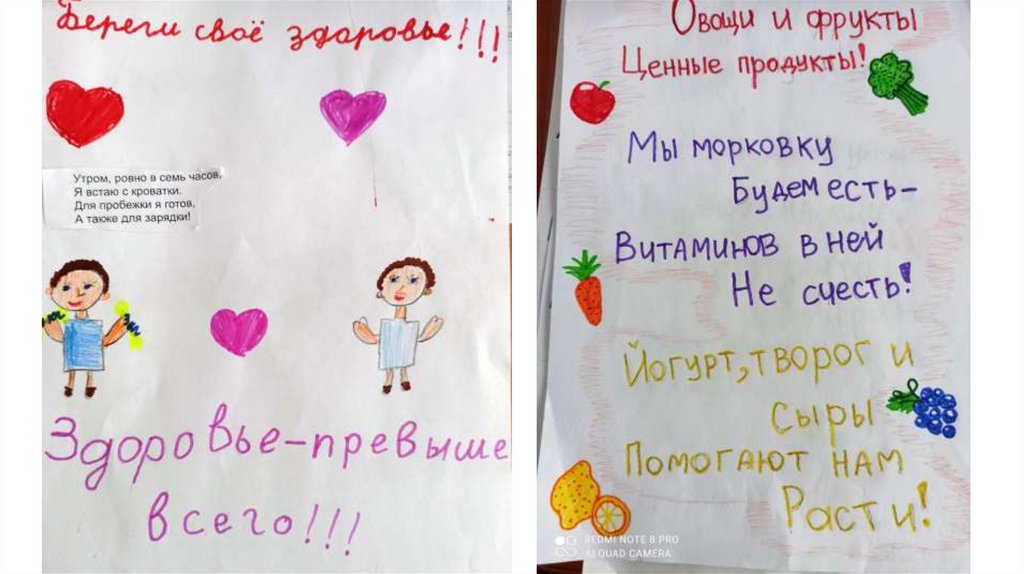 Береги своё здоровье!!!
Утром, ровно в семь часов,
Я встаю с кроватки.
Для пробежки я готов,
А также для зарядки!
Здоровье-превыше
всего!!!
Овощи и фрукты
Ценные продукты!
Мы морковку
Будем есть-
Витаминов в ней
Не счесть!
Йогурт, творог и
сыры
Помогают нам
Расти!
REDMI NOTE 8 PRO
AI QUAD CAMERA